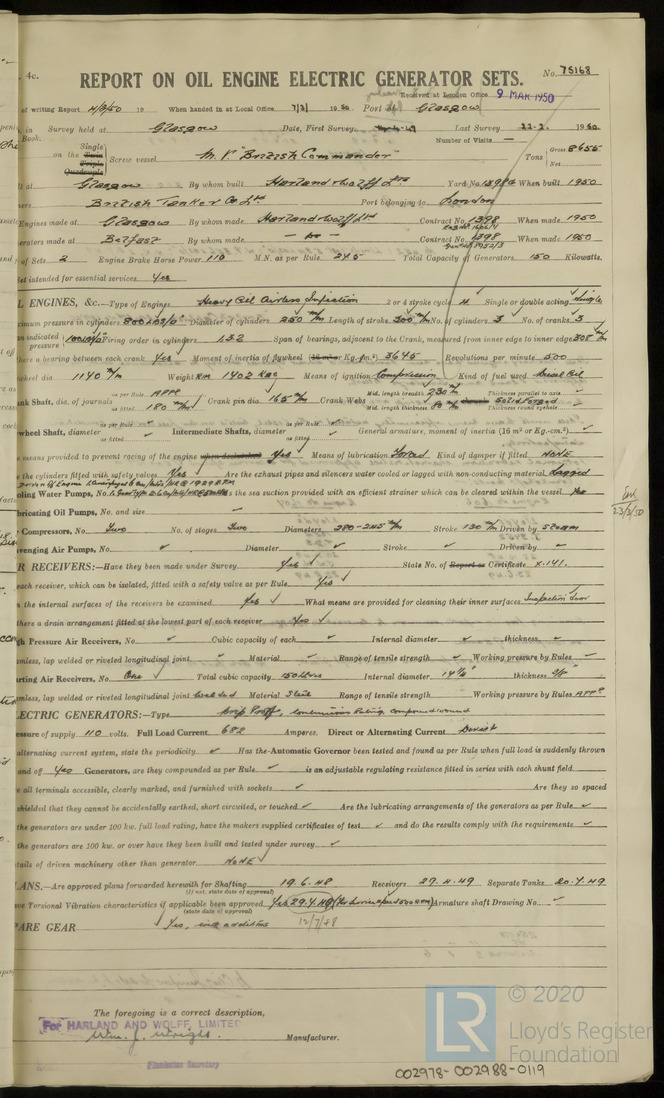 4c.
REPORT ON OIL ENGINE ELECTRIC GENERATOR SETS.
No. 75168
Received at London Office 9 MAR 1950
of writing Report 4/3/50 19 When handed in at Local Office 7/3/ 1950 Port of Glasgow
in Survey held at Glasgow Date, First Survey Last Survey 22-2. 1950.
Book.
Number of Visits —
Single
on the Twin Screw vessel M.V. "British Commander" Tons Gross 8655
Triple
Quadruple
Net
t at Glasgow By whom built Harland & Wolff Ltd Yard No. When built 1950
ners British Tanker Co Ltd Port belonging to London
Engines made at Glasgow By whom made Harland & Wolff Ltd Contract No. 1398 When made 1950
erators made at Belfast By whom made — do — Contract No. 1398 When made 1950
of Sets 2 Engine Brake Horse Power 110 M.N. as per Rule 245 Total Capacity of Generators 150 Kilowatts.
et intended for essential services Yes
L ENGINES, &c.—Type of Engines Heavy Oil Airless Injection 2 or 4 stroke cycle 4 Single or double acting Single
ximum pressure in cylinders 800 Diameter of cylinders 250 m/m Length of stroke 300 m/m No. of cylinders 3 No. of cranks 3
n indicated pressure Firing order in cylinders 1.3.2 Span of bearings, adjacent to the Crank, measured from inner edge to inner edge 305 m/m
there a bearing between each crank Yes Moment of inertia of flywheel (Kg.m.²) 3645 Revolutions per minute 500
wheel dia 1140 m/m Weight 1402 KGS Means of ignition Compression Kind of fuel used Diesel Oil
ank Shaft, dia. of journals as per Rule APPD as fitted 180 m/m Crank pin dia. 165 m/m Crank Webs Mid. length breadth 230 m/m Thickness parallel to axis
Mid. length thickness Solid Forged Thickness round eyehole
wheel Shaft, diameter as per Rule as fitted Intermediate Shafts, diameter as per Rule as fitted General armature, moment of inertia (16 m² or Kg.-cm.²)
means provided to prevent racing of the engine Yes Means of lubrication Forced Kind of damper if fitted NONE
the cylinders fitted with safety valves Yes Are the exhaust pipes and silencers water cooled or lagged with non-conducting material Lagged
oling Water Pumps, No. is the sea suction provided with an efficient strainer which can be cleared within the vessel Yes
bricating Oil Pumps, No. and size
Compressors, No. Two No. of stages Two Diameters 280-245 m/m Stroke 130 m/m Driven by Steam
venging Air Pumps, No. Diameter Stroke Driven by
R RECEIVERS:—Have they been made under Survey Yes State No. of Report or Certificate X.141.
each receiver, which can be isolated, fitted with a safety valve as per Rule Yes
n the internal surfaces of the receivers be examined Yes What means are provided for cleaning their inner surfaces Inspection door
there a drain arrangement fitted at the lowest part of each receiver Yes
gh Pressure Air Receivers, No. Cubic capacity of each Internal diameter thickness
mless, lap welded or riveted longitudinal joint Material Range of tensile strength Working pressure by Rules
rting Air Receivers, No. One Total cubic capacity 150 litres Internal diameter thickness
mless, lap welded or riveted longitudinal joint Welded Material Steel Range of tensile strength Working pressure by Rules APPD
ECTRIC GENERATORS:—Type Drip Proof, Continuous Rating, compound wound
essure of supply 110 volts. Full Load Current 682 Amperes. Direct or Alternating Current Direct
alternating current system, state the periodicity Has the Automatic Governor been tested and found as per Rule when full load is suddenly thrown
and off Yes Generators, are they compounded as per Rule is an adjustable regulating resistance fitted in series with each shunt field
e all terminals accessible, clearly marked, and furnished with sockets Are they so spaced
shielded that they cannot be accidentally earthed, short circuited, or touched Are the lubricating arrangements of the generators as per Rule
the generators are under 100 kw. full load rating, have the makers supplied certificates of test and do the results comply with the requirements
the generators are 100 kw. or over have they been built and tested under survey
tails of driven machinery other than generator NONE
LANS.—Are approved plans forwarded herewith for Shafting 19.6.48 Receivers 27.4.49 Separate Tanks 20.4.49
(If not, state date of approval)
ve Torsional Vibration characteristics if applicable been approved Yes 29.4.49 (for service speed 500 RPM) Armature shaft Drawing No.
(state date of approval)
12/7/48
ARE GEAR Yes, and additions
23/3/50
The foregoing is a correct description,
For HARLAND AND WOLFF, LIMITED
Wm. J. Wright Manufacturer.
Secretary
LR
© 2020
Lloyd's Register
Foundation
002978-002988-0119